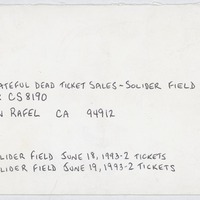 ATEFUL DEAD TICKET SALES - SOLIDER FIELD
CS 8190
RAFEL CA 94912
LIDER FIELD JUNE 18, 1993-2 TICKETS
LIDER FIELD JUNE 19, 1993-2 TICKETS